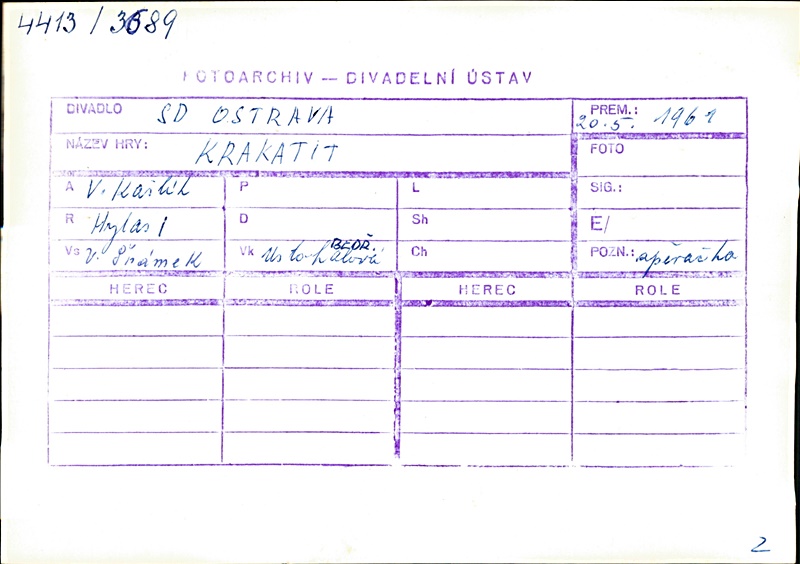 4413 / 3689
FOTOARCHIV — DIVADELNÍ ÚSTAV
DIVADLO SD OSTRAVA
PREM.: 20.5. 1961
NÁZEV HRY: KRAKATIT
FOTO
A V. Kašlík
P
L
SIG.:
R Hylas
D
Sh
E/
Vs V. Šrámek
Vk BEDŘ.
Ch
POZN.:
HEREC ROLE HEREC ROLE
2